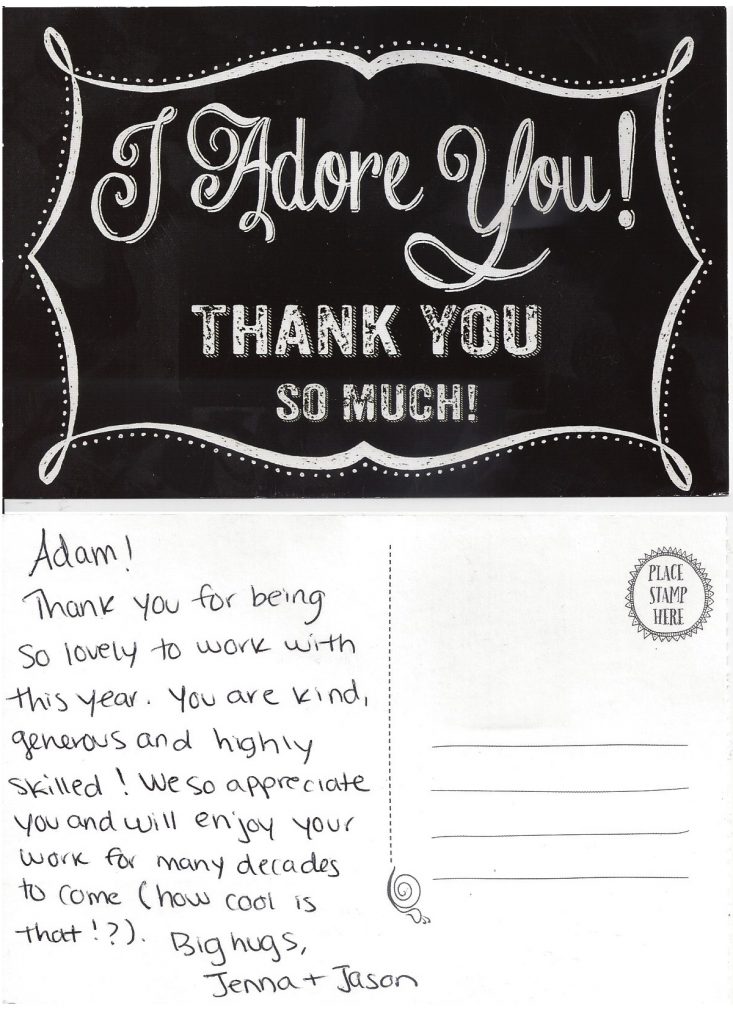 I Adore You!
THANK YOU
SO MUCH!
Adam!
Thank you for being
so lovely to work with
this year. You are kind,
generous and highly
skilled! We so appreciate
you and will enjoy your
work for many decades
to come (how cool is
that!?). Big hugs,
Jenna + Jason
PLACE
STAMP
HERE